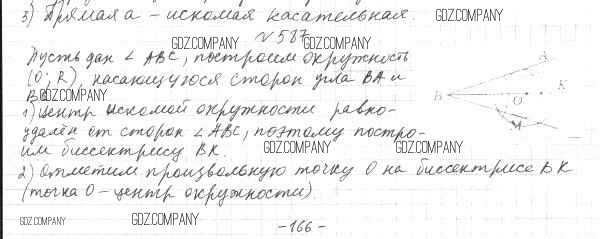 3) Прямая a – искомая касательная.
GDZ.COMPANY
№ 587
GDZ.COMPANY
GDZ.COMPANY
Пусть дан ∠ ABC, построим окружность
(O; R), касающуюся сторон угла BA и
BC.
GDZ.COMPANY
1) Центр искомой окружности равно-
удалён от сторон ∠ABC, поэтому постро-
им биссектрису BK.
GDZ.COMPANY
GDZ.COMPANY
2) Отметим произвольную точку O на биссектрисе BK
(точка O – центр окружности).
A
B
O
K
M
GDZ.COMPANY
GDZ.COMPANY
–166–